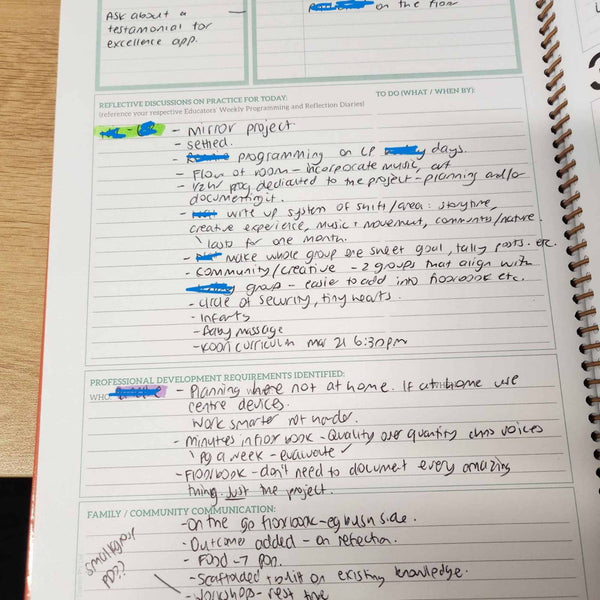 Ask about a
testamonial for
excellence app.
on the floor
REFLECTIVE DISCUSSIONS ON PRACTICE FOR TODAY:
TO DO (WHAT / WHEN BY):
(reference your respective Educators' Weekly Programming and Reflection Diaries)
- Mirror project
- settled.
- programming on LP days.
- Flow of room - incorporate music, art
- 1/2hr prog dedicated to the project - planning and/or
documenting it.
- write up system of shift/area: storytime,
creative experience, music + movement, community/nature.
lasts for one month.
- make whole group one sheet goal, tally posts. etc.
- community/creative - 2 groups that align with
group - easier to add into floorbook etc.
- circle of security, tiny hearts.
- infants
- Baby massage
- curriculum mar 21 6:30pm
PROFESSIONAL DEVELOPMENT REQUIREMENTS IDENTIFIED:
WHO
- Planning where not at home. If at home use
centre devices.
Work smarter not harder.
- Minutes in floor book - Quality over quantity voices
pg a week - evaluate ✓
- Floorbook - don't need to document every amazing
thing just the project.
FAMILY / COMMUNITY COMMUNICATION:
- On the go floorbook - eg side.
- Outcomes added - on reflection.
small group
PD??
- Food -
- Scaffolded + built on existing knowledge.
- Workshop - rest time